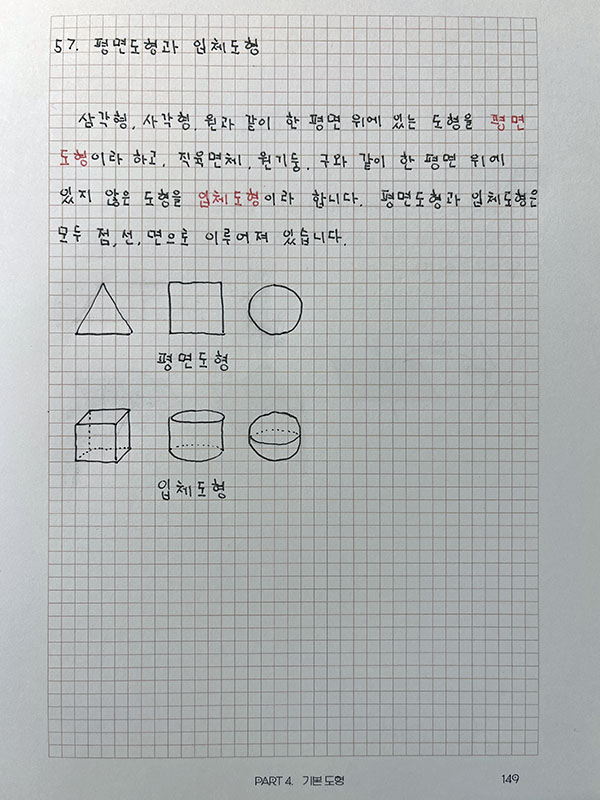 57. 평면도형과 입체도형
삼각형, 사각형, 원과 같이 한 평면 위에 있는 도형을 평면
도형이라 하고, 직육면체, 원기둥, 구와 같이 한 평면 위에
있지 않은 도형을 입체도형이라 합니다. 평면도형과 입체도형은
모두 점, 선, 면으로 이루어져 있습니다.
평면도형
입체도형
PART 4. 기본 도형 149